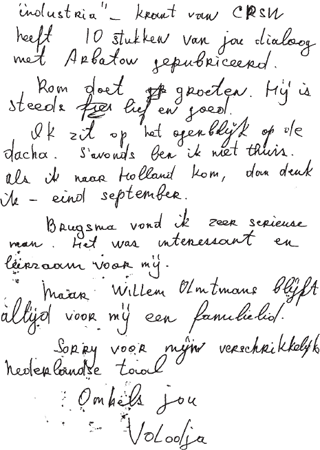 "industria" - krant van CRSW
heeft 10 stukken van jou dialoog
met Arbatow gepubriceerd.
Rom doet groeten. Hij is
steeds lief en goed.
Ik zit op het ogenblijk op de
dacha. S'avonds ben ik met thuis.
als ik naar Holland kom, dan denk
ik - eind september.
Brugsma vond ik zeer serieuse
man. Het was interessant en
leirzaam voor mij.
Maar Willem Olmtmans blijft
altijd voor mij een familielid.
Sorry voor mijn verschrikkelijk
nederlandse taal
Omhels jou
Volodja